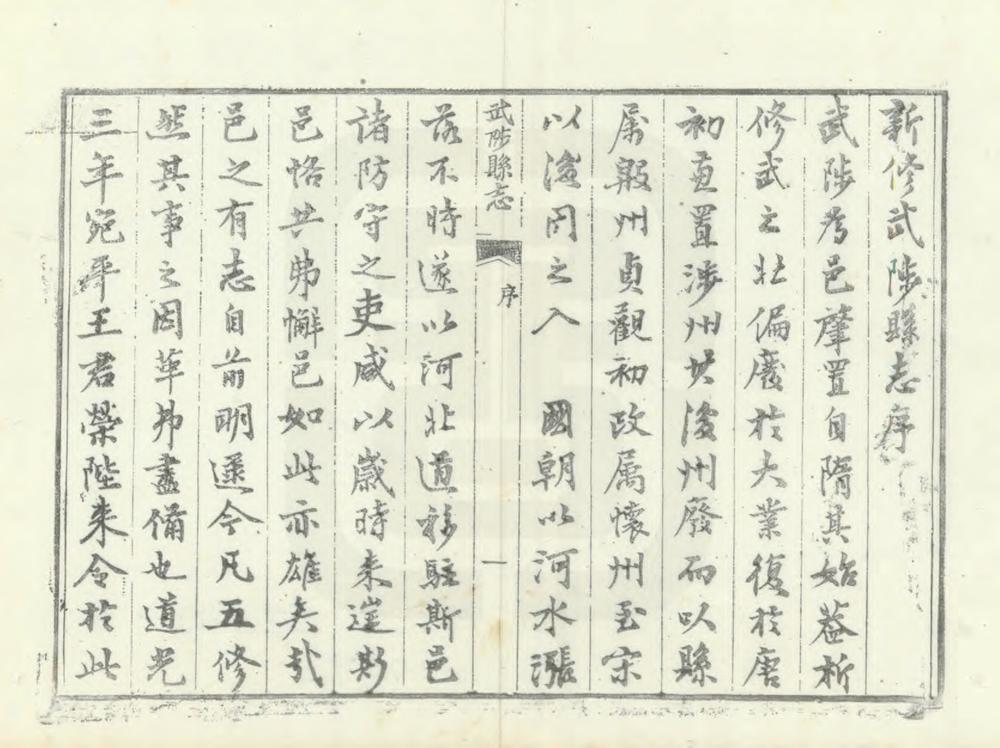 新修武陟縣志序
武陟為邑肇置自隋其始葢析
修武之壯偏廢於大業復於唐
初直置涉州其後州廢而以縣
屬殷州貞觀初改属懷州至宋
以後因之入 國朝以河水漲
武陟縣志 序 一
落不時遂以河北道移駐斯邑
諸防守之吏咸以歲時来莅斯
邑恪共弗懈邑如此亦雄矣哉
邑之有志自前明迄今凡五修
然其事之因革弗盡備也道光
三年宛平王君榮陛来令於此